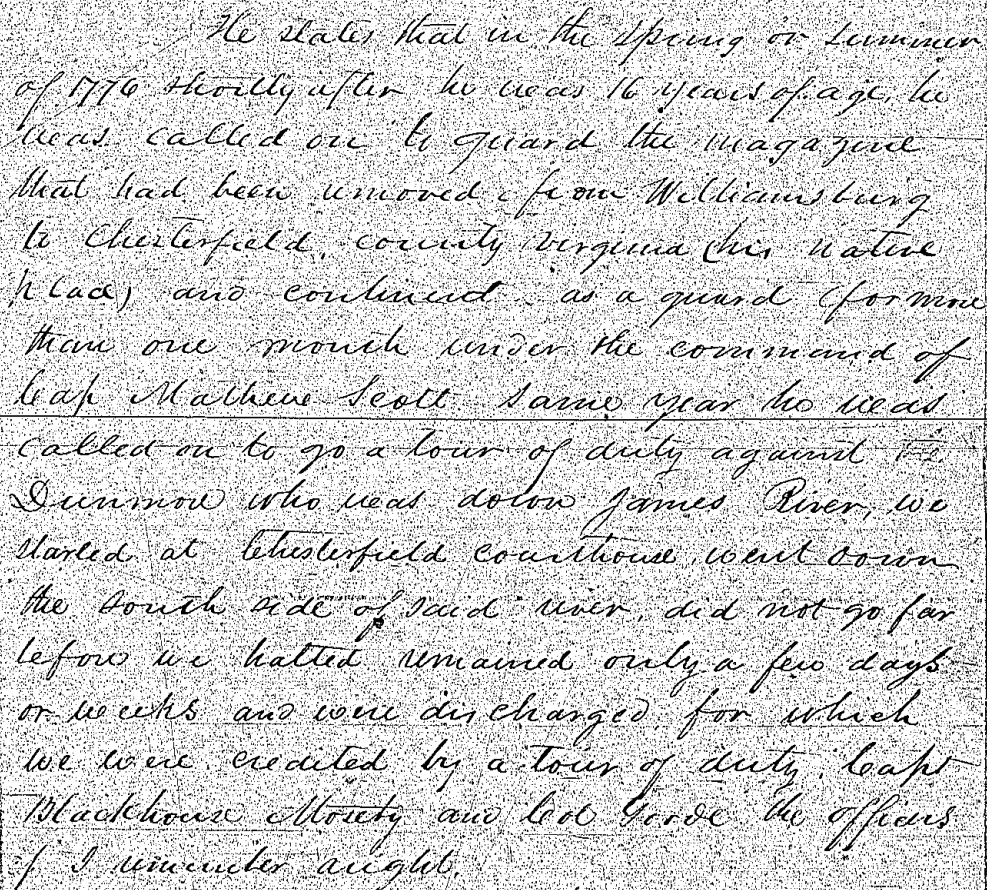 He states that in the spring or summer
of 1776 shortly after he was 16 years of age, he
was called on to guard the magazine
that had been removed from Williamsburg
to Chesterfield, county Virginia (his native
place) and continued as a guard for more
than one month under the command of
Cap Mathew Scott same year he was
called on to go a tour of duty against
Dunmore who was down James River, we
started at Chesterfield courthouse, went down
the south side of said river, did not go far
before we halted remained only a few days
or weeks and were discharged, for which
we were credited by a tour of duty, Capt
Blackhouse Mosety and Col Goode the officers
if I remember aright.